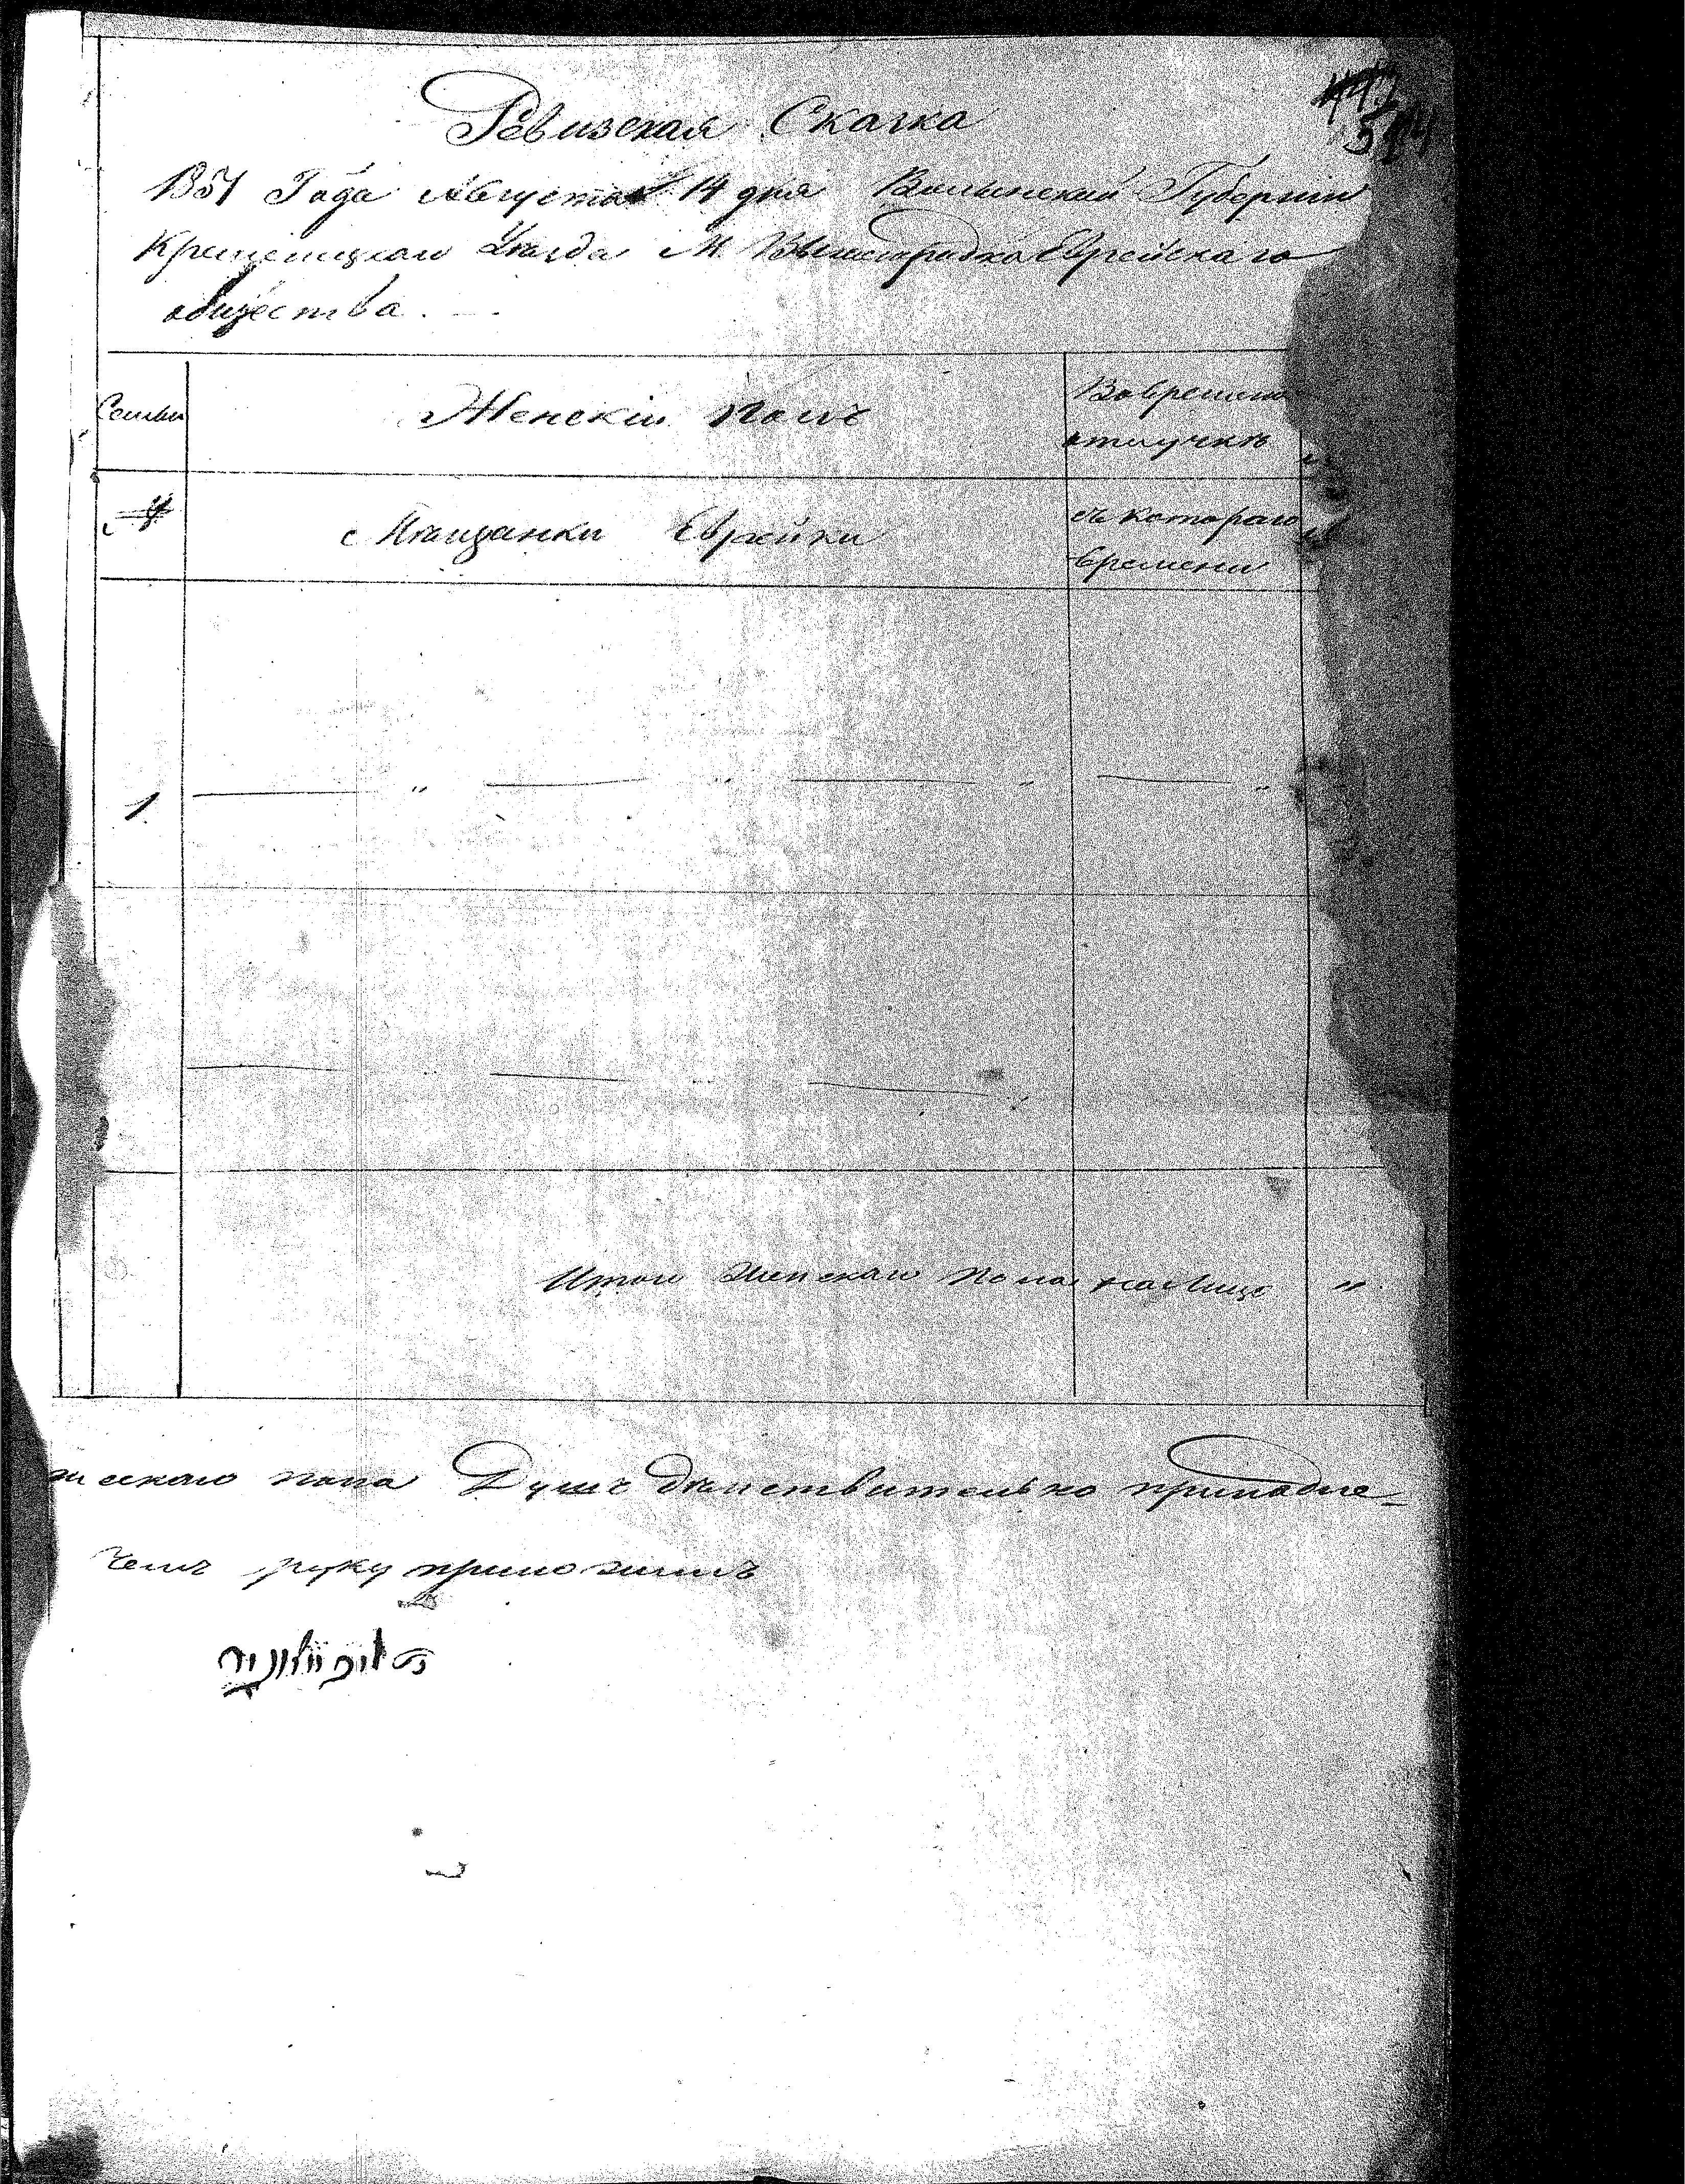 Ревизская Сказка
1851 Года Августа 14 дня Волынской Губернии
Кременецкого Уезда М. Вышегрудка Еврейскаго
общества.
Семьи
Женскій полъ
Во временной
отлучке
№
Мѣщанки Еврейки
съ котораго
времени
1.
Итого Женскаго пола на Лице "
жескаго пола Душъ действительно принадле-
чемъ руку приложилъ